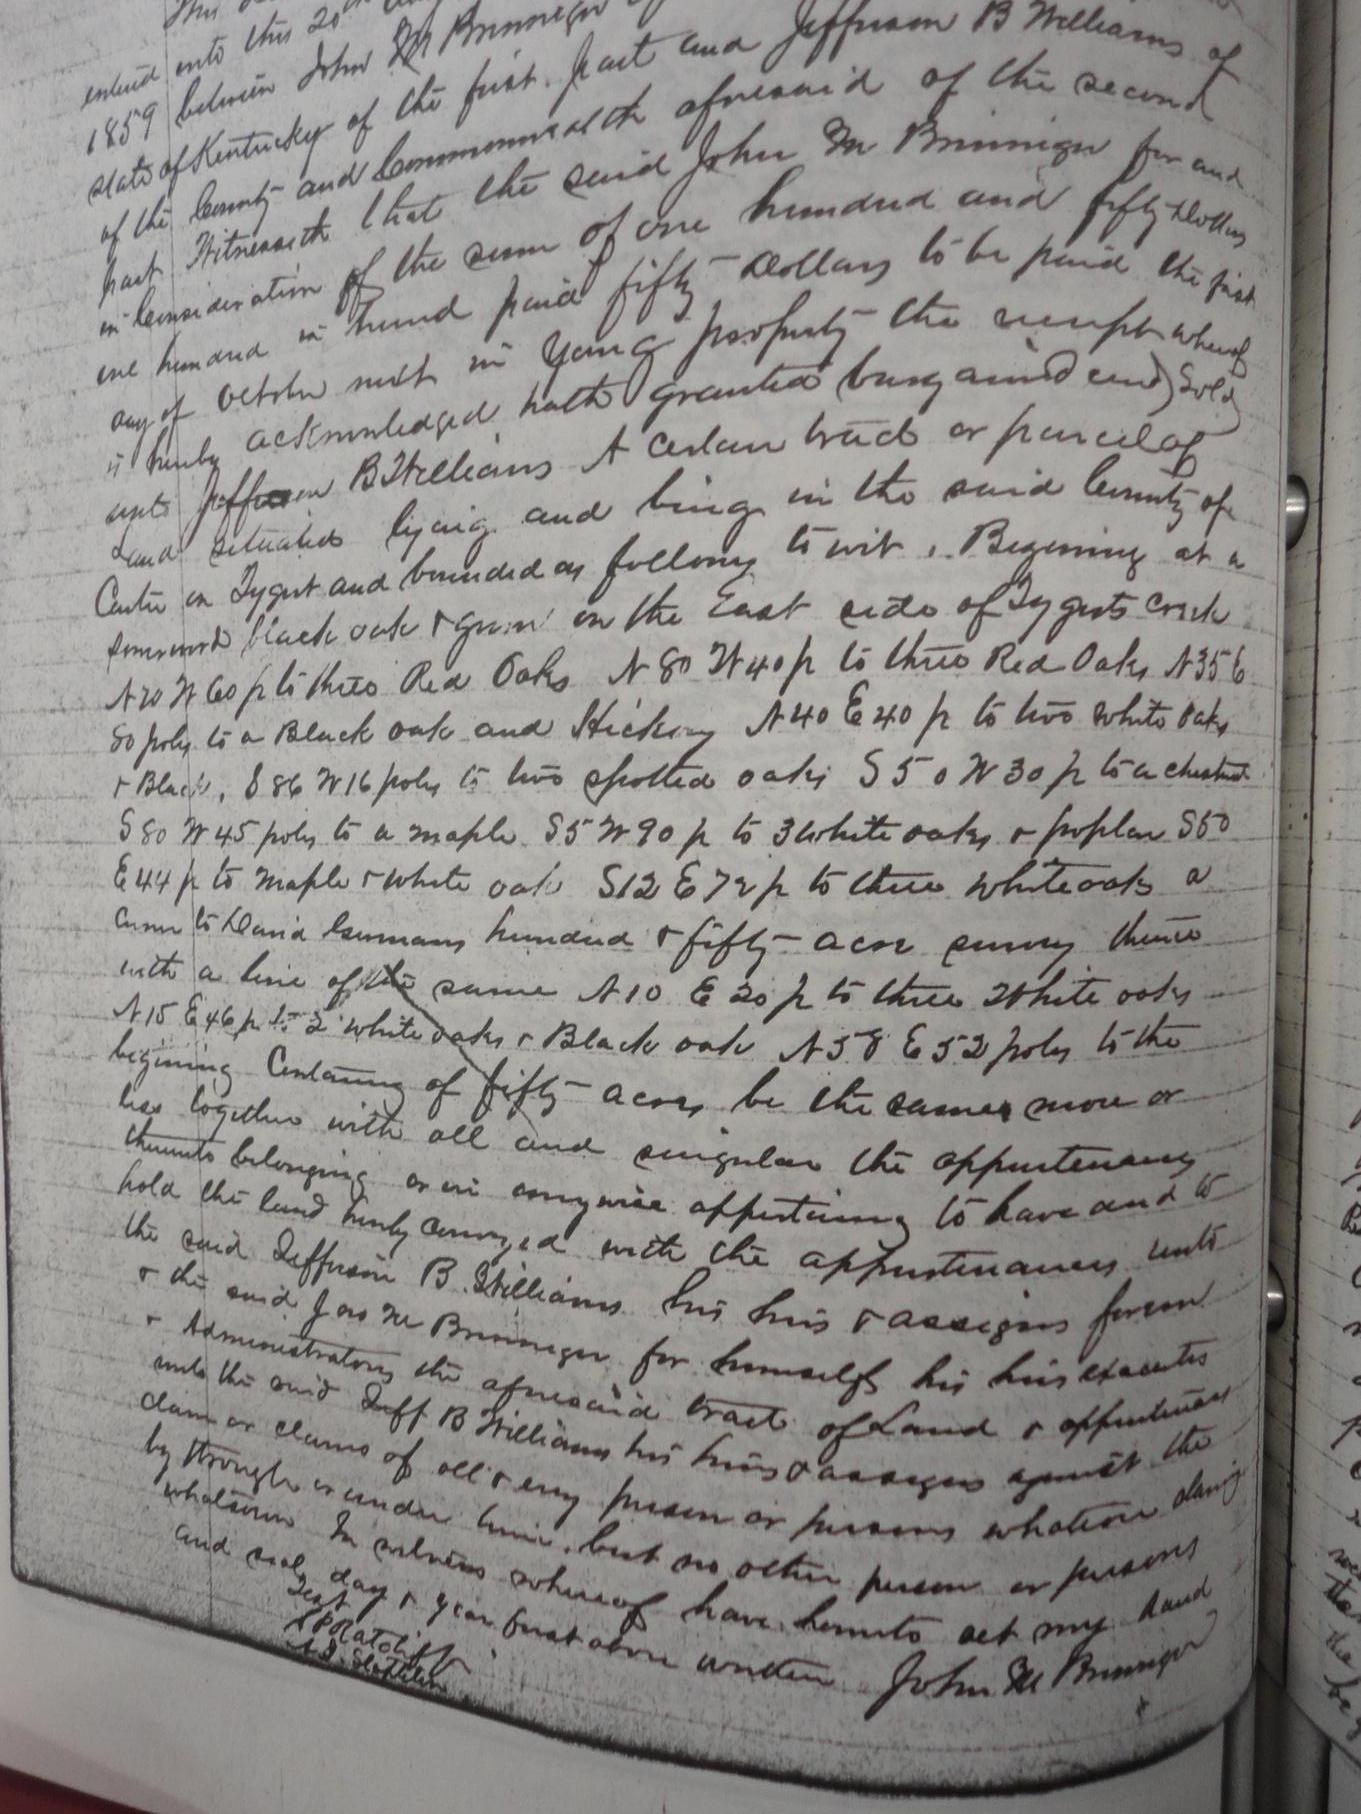 This
entered into this 20th
1859 between John M Brinnegar
state of Kentucky of the first part and Jefferson B Williams of
of the County and Commonwealth aforesaid of the second
part Witnesseth that the said John M Brinnegar for and
in Consideration of the sum of one hundred and fifty Dollars
one hundred in hand paid fifty Dollars to be paid the first
day of October next in Young property the receipt whereof
is hereby acknowledged hath granted bargained and Sold
unto Jefferson B Williams A certain tract or parcel of
Land situated lying and being in the said County of
Carter on Tygert and bounded as follows to wit, Begining at a
black oak & gum on the East side of Tygerts creek
N20 W 60 p to three Red Oaks N 80 W 40 p to three Red Oaks N 35 E
80 poles to a Black oak and Hickory N 40 E 40 p to two white oaks
& Black, S 86 W 16 poles to two spotted oaks S 50 W 30 p to a chestnut
S 80 W 45 poles to a maple S 5 W 90 p to 3 white oaks & poplar S 50
E 44 p to maple & white oak S 12 E 72 p to three white oaks a
corner to David hundred & fifty acre survey thence
with a line of the same N 10 E 20 p to three White oaks
N 15 E 46 p to 2 white oaks & Black oak N 58 E 52 poles to the
begining Containing of fifty acres be the same more or
less together with all and singular the appurtenances
thereunto belonging or in anywise appertaining to have and to
hold the land hereby conveyed with the appurtenances unto
the said Jefferson B. Williams his heirs & assigns forever
& the said Jno M Brinnegar for himself his heirs executors
& Administrators the aforesaid tract of Land & appurtenances
unto the said Jeff B Williams his heirs & assigns against the
claim or claims of all & every person or persons whatsoever claiming
by through or under him, but no other person or persons
whatsoever In witness whereof have hereunto set my hand
and seal day & year first above written John M Brinnegar
Test
Ratcliff